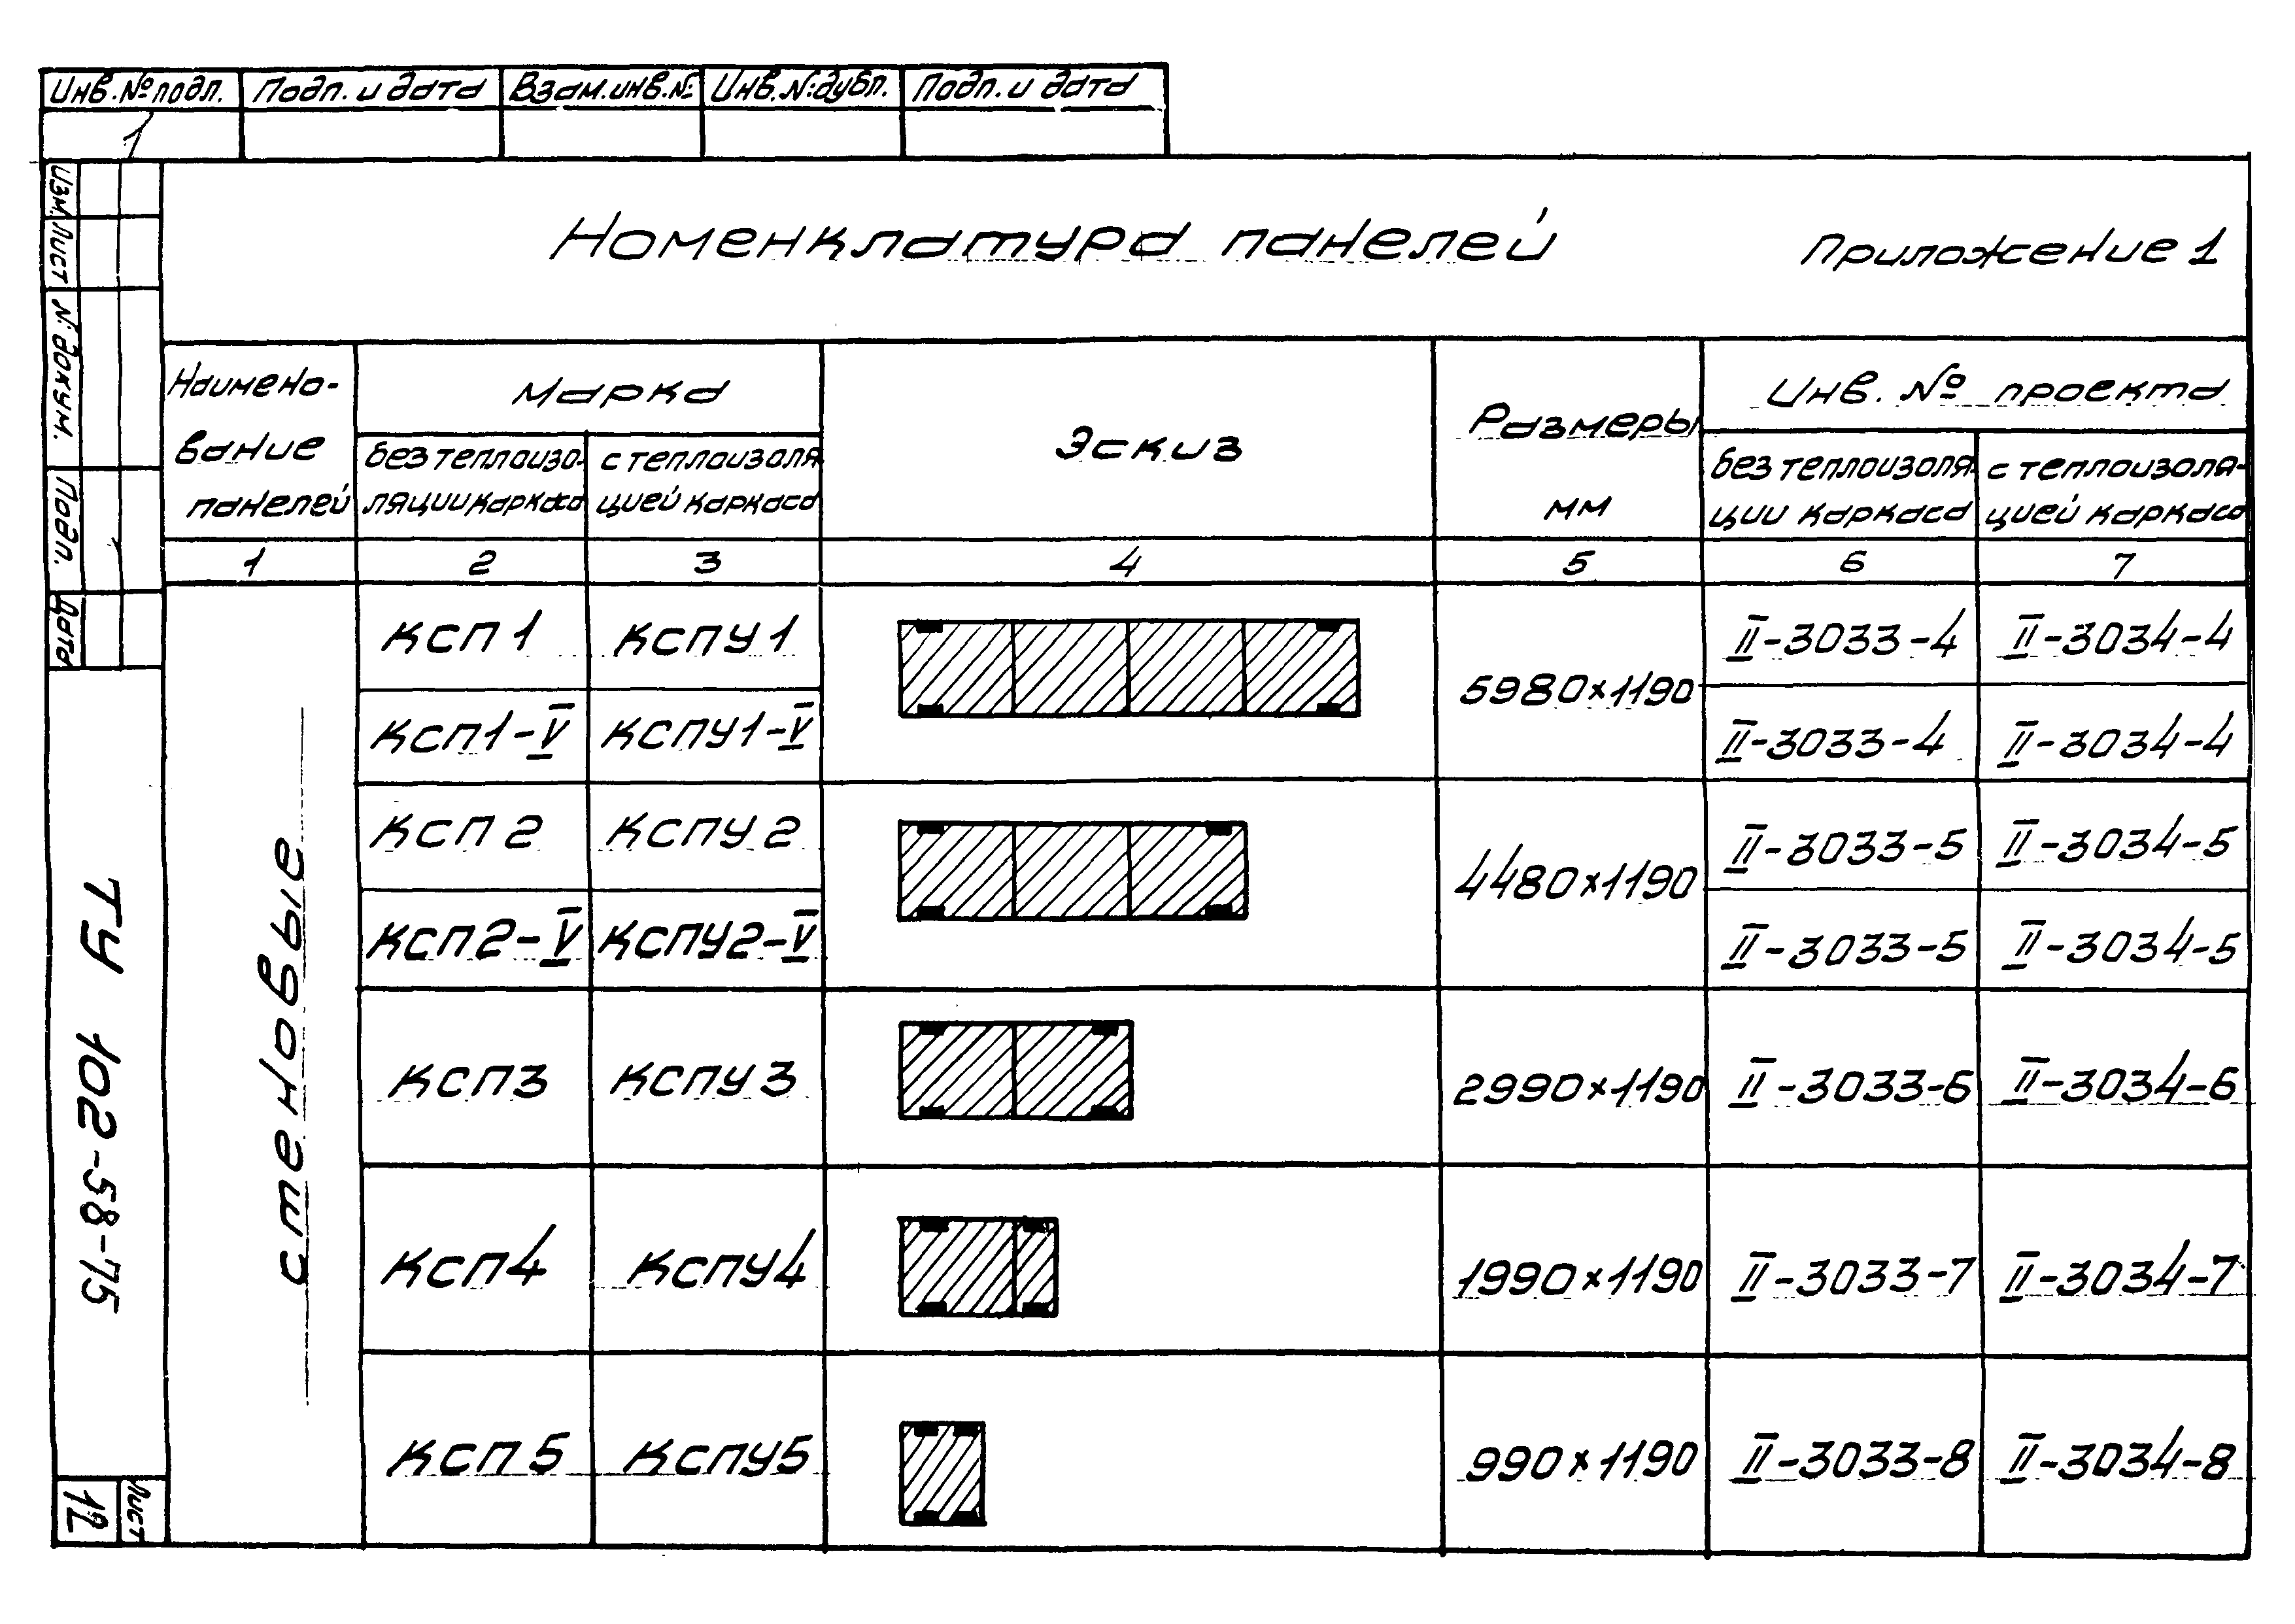 Инв. № подп. Подп. и дата Взам. инв. № Инв. № дубл. Подп. и дата
1
Изм. Лист № докум. Подп. Дата
Номенклатура панелей Приложение 1
Наимено-
вание
панелей
Марка
без теплоизо-
ляции каркаса
с теплоизоля
цией каркаса
Эскиз
Размеры
мм
Инв. № проекта
без теплоизоля-
ции каркаса
с теплоизоля-
цией каркаса
1 2 3 4 5 6 7
стеновые
КСП 1 КСПУ 1 5980×1190 II-3033-4 II-3034-4
КСП1-V КСПУ1-V II-3033-4 II-3034-4
КСП 2 КСПУ 2 4480×1190 II-3033-5 II-3034-5
КСП2-V КСПУ2-V II-3033-5 II-3034-5
КСП3 КСПУ 3 2990×1190 II-3033-6 II-3034-6
КСП4 КСПУ4 1990×1190 II-3033-7 II-3034-7
КСП 5 КСПУ5 990×1190 II-3033-8 II-3034-8
ТУ 102-58-75
Лист
12